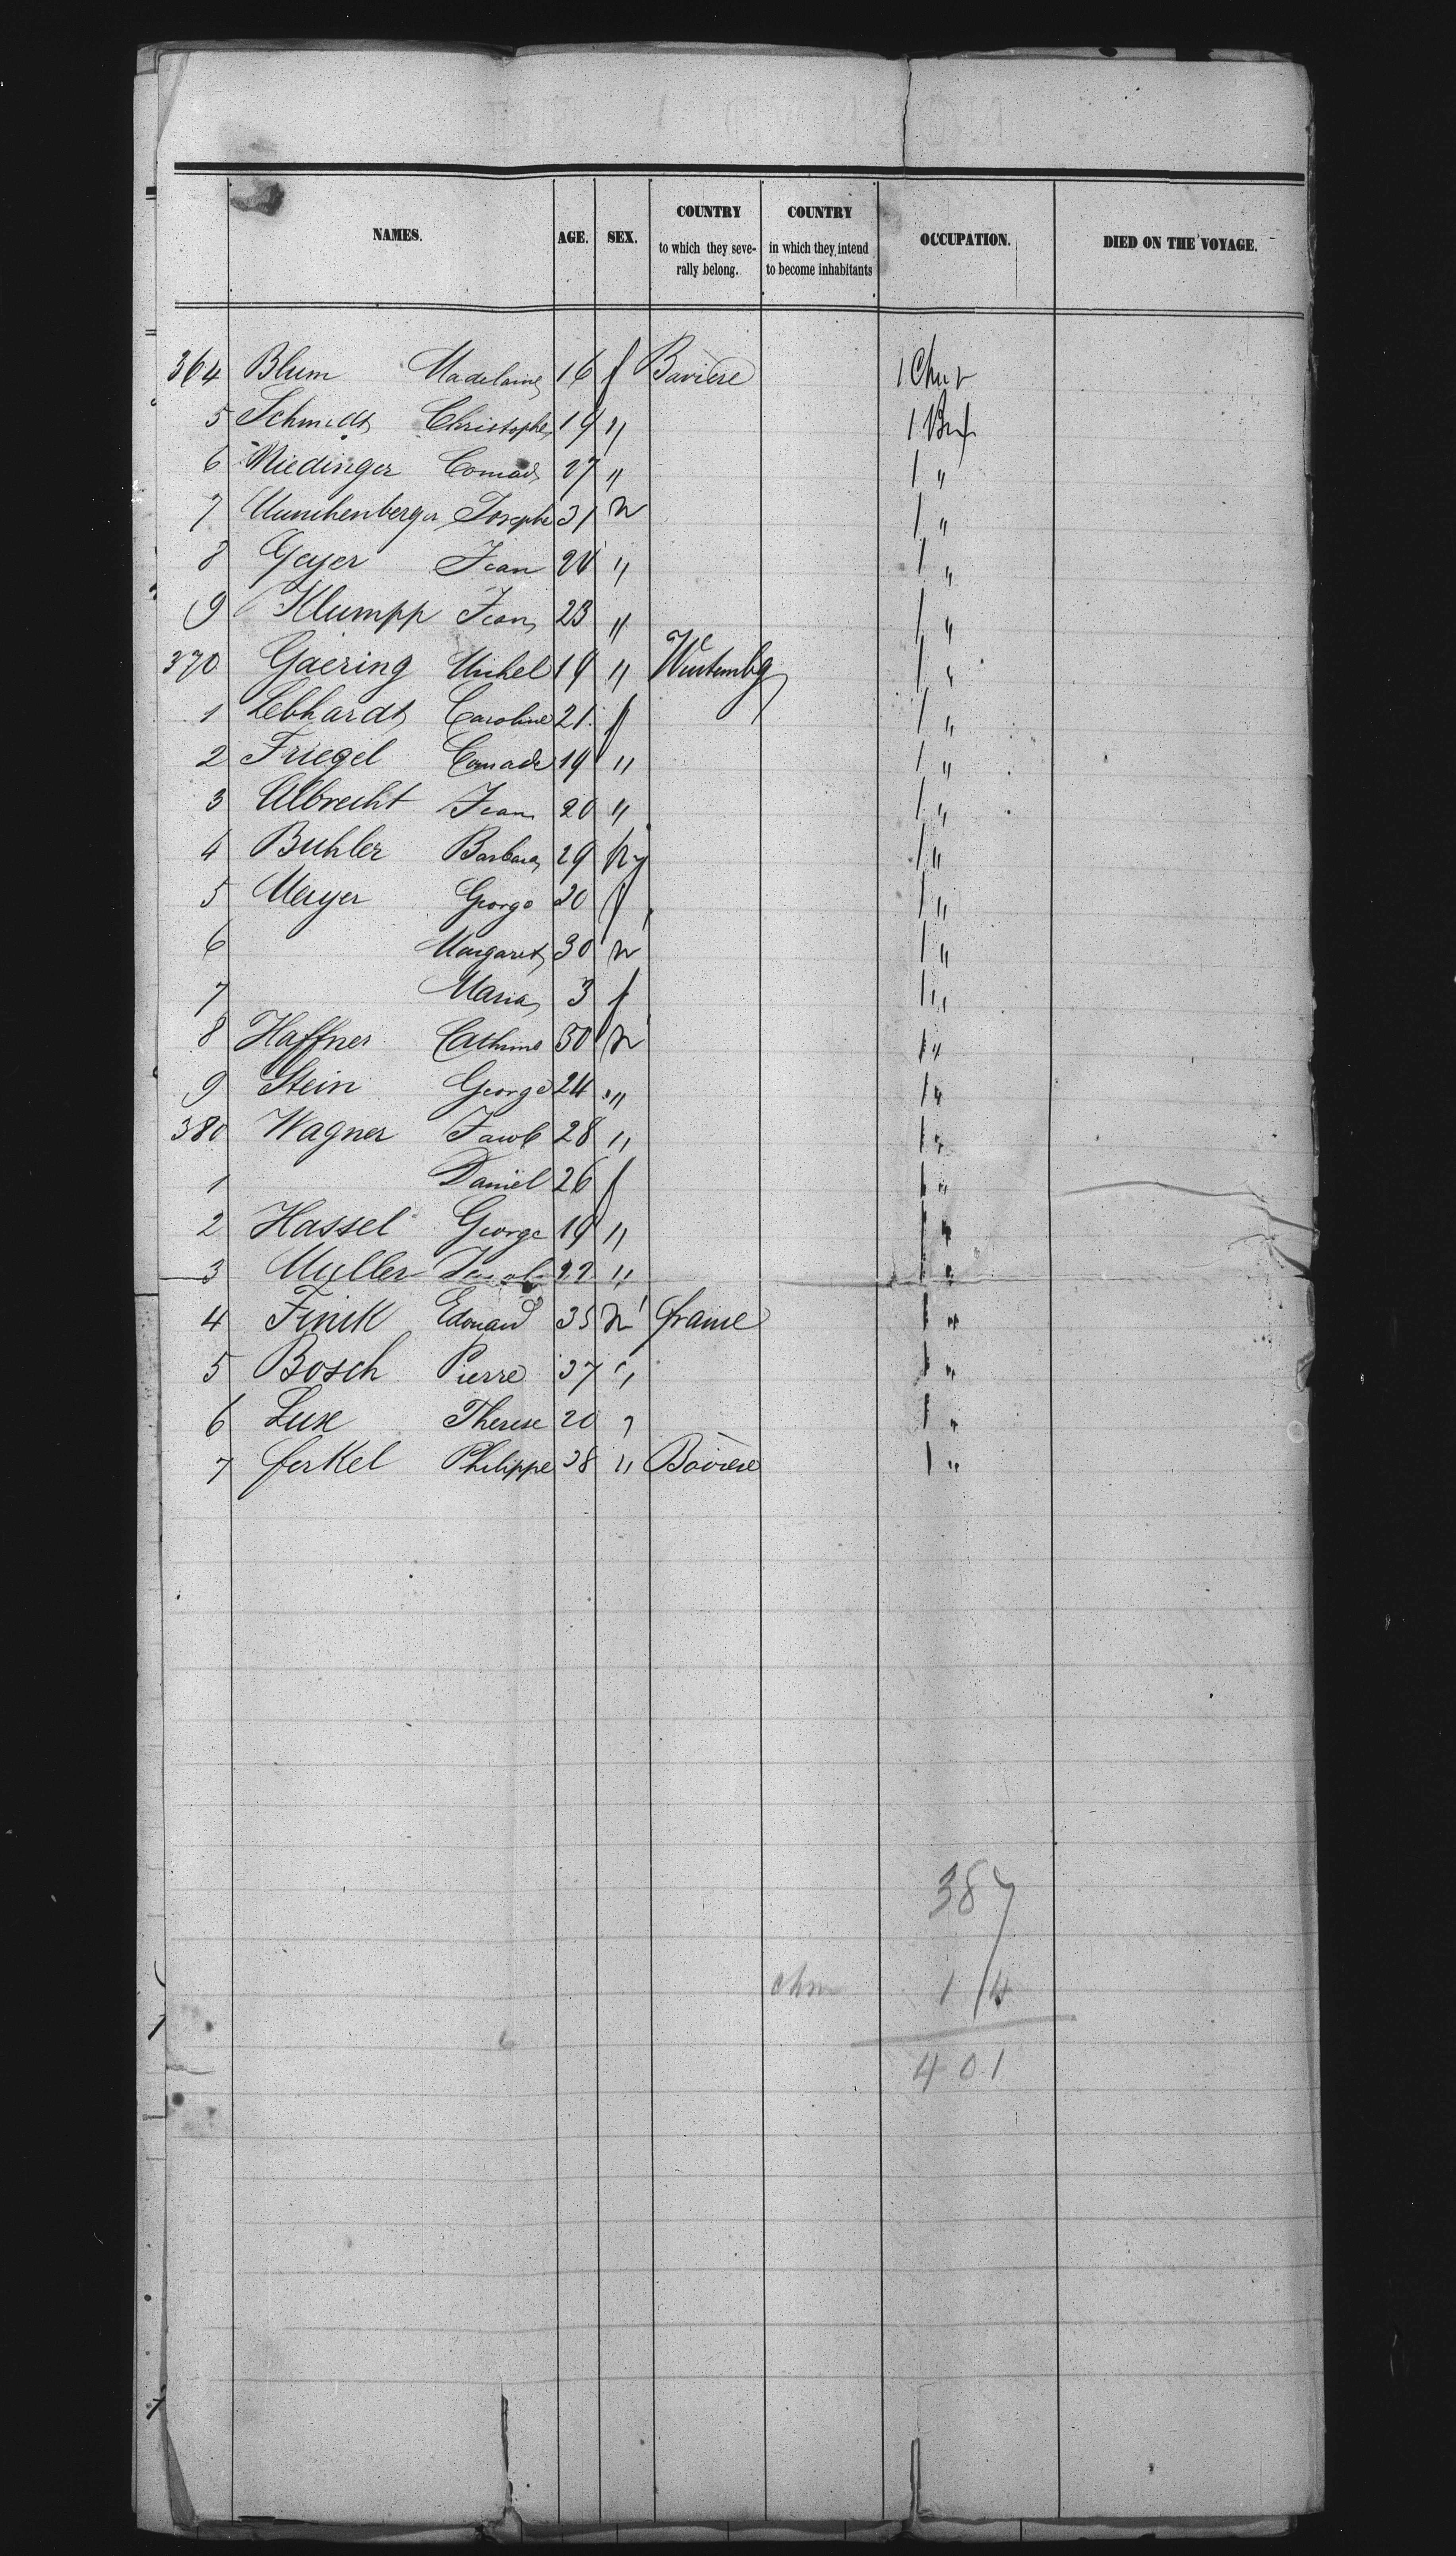 NAMES. AGE. SEX. COUNTRY to which they seve- rally belong. COUNTRY in which they intend to become inhabitants OCCUPATION. DIED ON THE VOYAGE.
364 Blum Madelaine 16 f Baviere 1
5 Schmidt Christophe 19 " 1
6 Riedinger Conrad 27 " 1 "
7 Munchenberger Josephe 31 m 1 "
8 Geyer Jean 24 " 1 "
9 Klumpp Jean 23 " 1 "
370 Gaering Michel 19 " Wurtembg 1 "
1 Lebhardt Caroline 21 f 1 "
2 Friegel Conrade 19 " 1 "
3 Albrecht Jean 20 " 1 "
4 Buhler Barbara 29 1 "
5 Meyer George 20 f 1 "
6 Margaret 30 m 1 "
7 Maria 3 f 1 "
8 Haffner Cathrine 30 m 1 "
9 Stein George 24 " 1 "
380 Wagner Jacob 28 " 1 "
1 Daniel 26 f 1 "
2 Hassel George 19 " 1 "
3 Muller Jacob 22 " 1 "
4 Finck Edouard 35 m france 1 "
5 Bosch Pierre 37 " 1 "
6 Lux Therese 20 " 1 "
7 ferkel Philippe 38 " Baviere 1 "
387
14
401